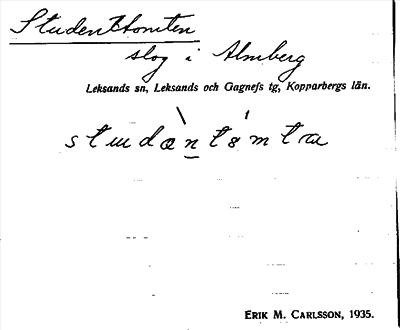 Studenttomten
slog i Almberg
Leksands sn, Leksands och Gagnefs tg, Kopparbergs län.
ERIK M. CARLSSON, 1935.